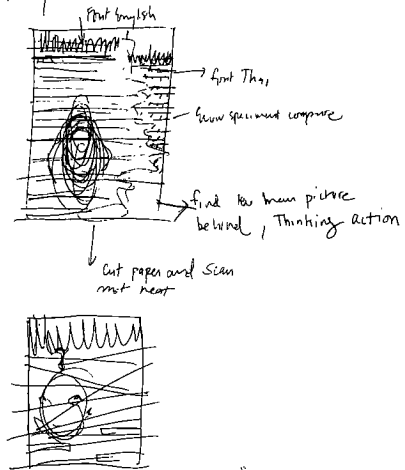 Font English
font Thai
Show speciment compare
find man picture
behind, Thinking action
Cut paper and Scan
not neat